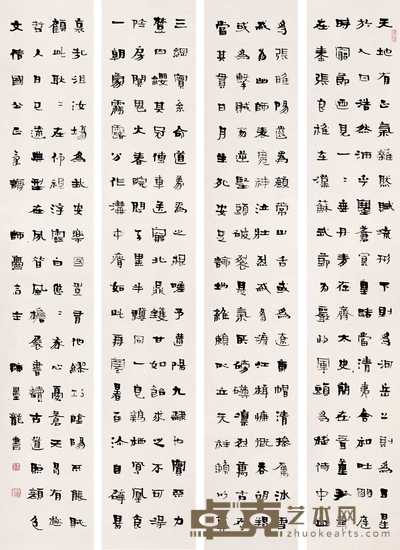 天地有正氣雜然賦流形下則為河岳上則為日星
於人曰浩然沛乎塞蒼冥皇路當清夷含和吐明庭
時窮節乃見一一垂丹青在齊太史簡在晉董狐筆
在秦張良椎在漢蘇武節為嚴將軍頭為嵇侍中血
為張睢陽齒為顏常山舌或為遼東帽清操厲冰雪
或為出師表鬼神泣壯烈或為渡江楫慷慨吞胡羯
或為擊賊笏逆豎頭破裂是氣所磅礴凜烈萬古存
當其貫日月生死安足論地維賴以立天柱賴以尊
三綱實系命道義為之根嗟予遘陽九隸也實不力
楚囚纓其冠傳車送窮北鼎鑊甘如飴求之不可得
陰房闐鬼火春院閟天黑牛驥同一皂雞棲鳳凰食
一朝蒙霧露分作溝中瘠如此再寒暑百沴自辟易
哀哉沮洳場為我安樂國豈有他繆巧陰陽不能賊
顧此耿耿在仰視浮雲白悠悠我心憂蒼天曷有極
哲人日已遠典型在夙昔風檐展書讀古道照顏色
文信國公正氣歌 師墨龍書
卓克艺术网